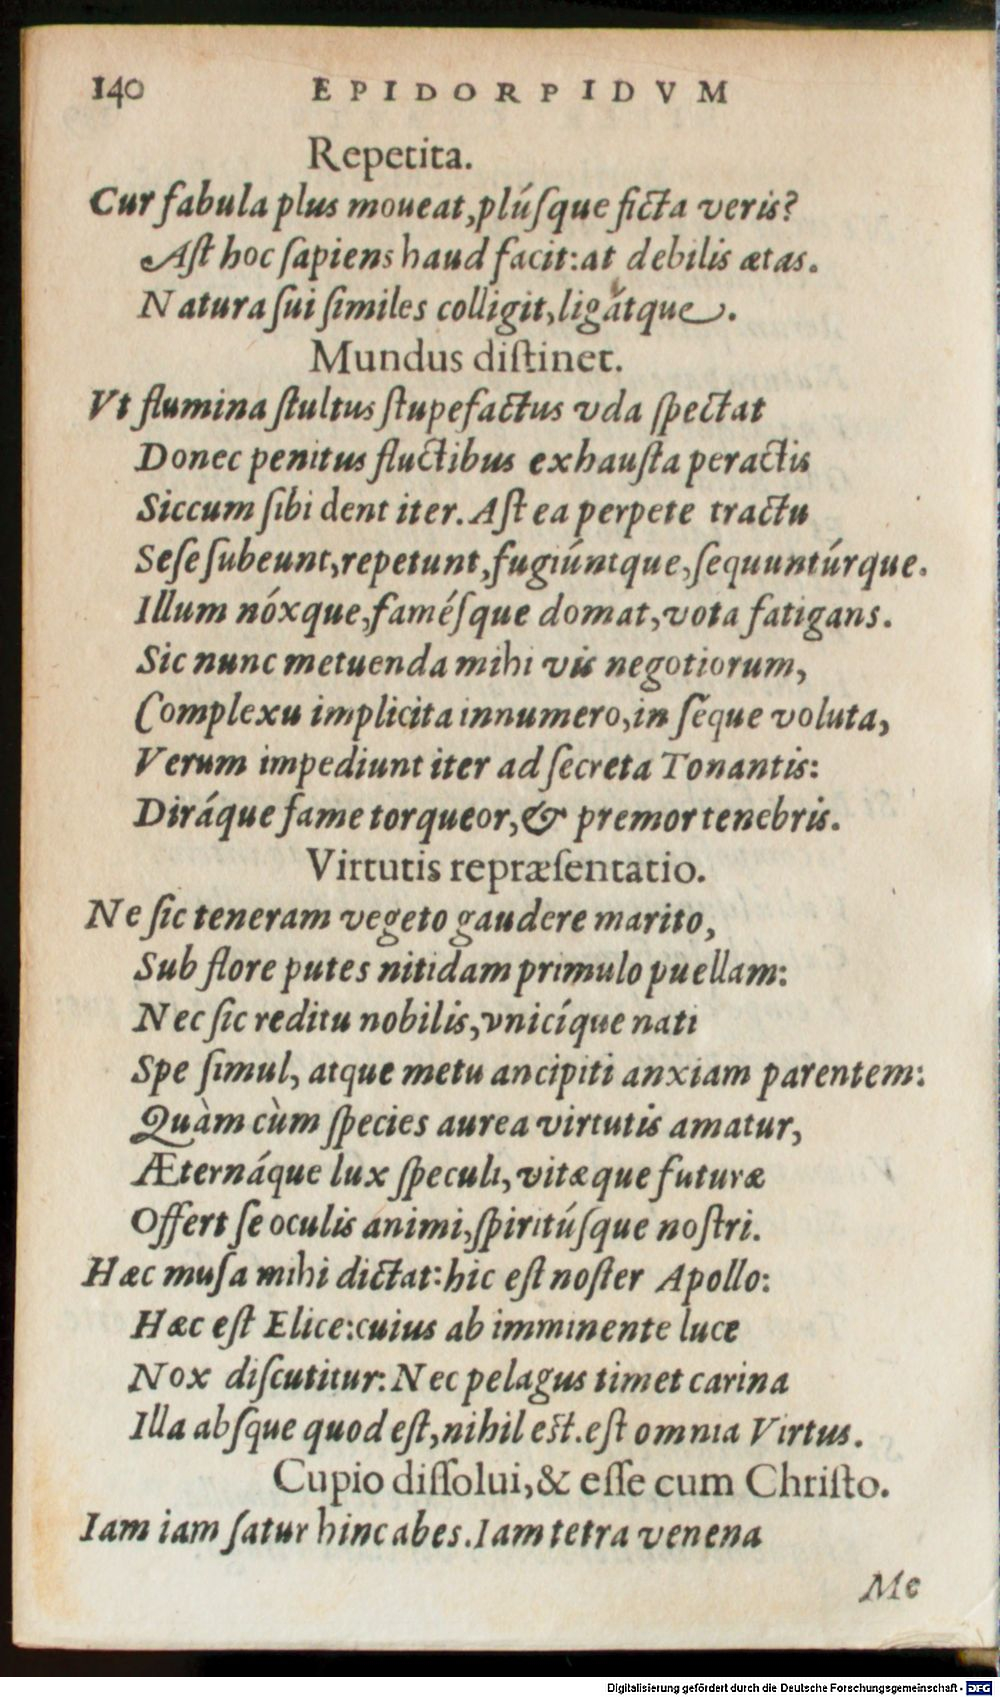 140 EPIDORPIDVM
Repetita.
Cur fabula plus moueat, plúſque ficta veris?
Aſt hoc ſapiens haud facit: at debilis ætas.
Natura ſui ſimiles colligit, ligátque.
Mundus diſtinet.
Vt flumina ſtultus ſtupefactus vda ſpectat
Donec penitus fluctibus exhauſta peractis
Siccum ſibi dent iter. Aſt ea perpete tractu
Seſe ſubeunt, repetunt, fugiúntque, ſequuntúrque.
Illum nóxque, faméſque domat, vota fatigans.
Sic nunc metuenda mihi vis negotiorum,
Complexu implicita innumero, in ſéque voluta,
Verum impediunt iter ad ſecreta Tonantis:
Diráque fame torqueor, & premor tenebris.
Virtutis repræſentatio.
Ne ſic teneram vegeto gaudere marito,
Sub flore putes nitidam primulo puellam:
Nec ſic reditu nobilis, vnicíque nati
Spe ſimul, atque metu ancipiti anxiam parentem:
Quàm cùm ſpecies aurea virtutis amatur,
Æternáque lux ſpeculi, vitæque futuræ
Offert ſe oculis animi, ſpiritúſque noſtri.
Hæc muſa mihi dictat: hic eſt noſter Apollo:
Hæc eſt Elice: cuius ab imminente luce
Nox diſcutitur: Nec pelagus timet carina
Illa abſque quod eſt, nihil eſt. eſt omnia Virtus.
Cupio diſſolui, & eſſe cum Chriſto.
Iam iam ſatur hinc abes. Iam tetra venena
Me
Digitalisierung gefördert durch die Deutsche Forschungsgemeinschaft - DFG